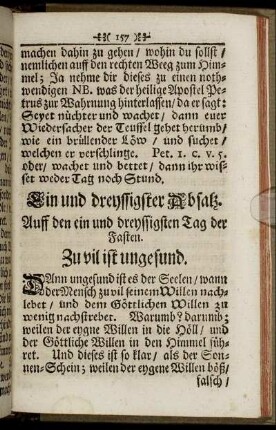 157
machen dahin zu gehen / wohin du sollst /
nemlichen auff den rechten Weeg zum Him-
mel; Ja nehme dir dieses zu einen noth-
wendigen NB. was der heilige Apostel Pe-
trus zur Wahrnung hinterlassen / da er sagt:
Seyet nüchter und wachet / dann euer
Wiedersacher der Teuffel gehet herumb /
wie ein brüllender Löw / und suchet /
welchen er verschlinge. Pet. 1. c. v. 5.
oder / wachet und bettet / dann ihr wis-
set weder Tag noch Stund.
Ein und dreyssigster Absatz.
Auff den ein und dreyssigsten Tag der
Fasten.
Zu vil ist ungesund.
DAnn ungesund ist es der Seelen / wann
der Mensch zu vil seinem Willen nach-
lebet / und dem Göttlichen Willen zu
wenig nachstrebet. Warumb? darumb;
weilen der eygne Willen in die Höll / und
der Göttliche Willen in den Himmel füh-
ret. Und dieses ist so klar / als der Son-
nen-Schein; weilen der eygene Willen böß /
falsch /